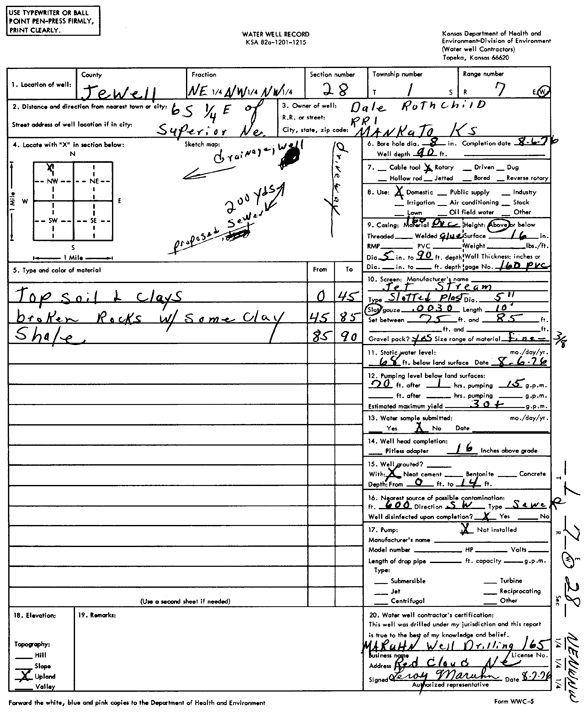 USE TYPEWRITER OR BALL
POINT PEN-PRESS FIRMLY,
PRINT CLEARLY.
WATER WELL RECORD
KSA 82a-1201-1215
Kansas Department of Health and
Environment-Division of Environment
(Water well Contractors)
Topeka, Kansas 66620
1. Location of well: County Jewell Fraction NE 1/4 NW 1/4 NW 1/4 Section number 28 Township number T 1 S Range number R 7 E W
2. Distance and direction from nearest town or city: 6S 1/4 E of
Street address of well location if in city: Superior Ne.
3. Owner of well: Dale Rothchild
R.R. or street: RR1
City, state, zip code: MANKATO KS
4. Locate with "X" in section below:
N
X
NW NE
W E
SW SE
S
1 Mile
1 Mile
Sketch map:
Drainage, Well
200 yds
proposed sewer
6. Bore hole dia. 8 in. Completion date 8-6-76
Well depth 90 ft.
7. Cable tool X Rotary Driven Dug
Hollow rod Jetted Bored Reverse rotary
8. Use: X Domestic Public supply Industry
Irrigation Air conditioning Stock
Lawn Oil field water Other
9. Casing: Material 160 PVC Height: Above or below
Threaded Welded glue Surface 16 in.
RMP PVC Weight lbs./ft.
Dia. 5 in. to 90 ft. depth Wall Thickness: inches or
Dia. in. to ft. depth gage No. 160 PVC
10. Screen: Manufacturer's name
Jet Stream
Type Slotted Plast Dia. 5"
Slot gauze .0030 Length 10'
Set between 75 ft. and 85 ft.
ft. and ft.
Gravel pack? yes Size range of material Fine 3/8
11. Static water level: mo./day/yr.
68 ft. below land surface Date 8-6-76
12. Pumping level below land surfaces:
70 ft. after 1 hrs. pumping 15 g.p.m.
ft. after hrs. pumping g.p.m.
Estimated maximum yield 30+ g.p.m.
13. Water sample submitted: mo./day/yr.
Yes X No Date
14. Well head completion:
Pitless adapter 16 Inches above grade
15. Well grouted?
With: X Neat cement Bentonite Concrete
Depth: From 0 ft. to 14 ft.
16. Nearest source of possible contamination:
ft. 600 Direction SW Type Sewer
Well disinfected upon completion? X Yes No
17. Pump: X Not installed
Manufacturer's name
Model number HP Volts
Length of drop pipe ft. capacity g.p.m.
Type:
Submersible Turbine
Jet Reciprocating
Centrifugal Other
5. Type and color of material From To
Top soil & Clays 0 45
broken Rocks w/ Some Clay 45 85
Shale 85 90
(Use a second sheet if needed)
18. Elevation:
Topography:
Hill
Slope
X Upland
Valley
19. Remarks:
20. Water well contractor's certification:
This well was drilled under my jurisdiction and this report
is true to the best of my knowledge and belief.
MARUHN Well Drilling 165
Business name License No.
Address Red Cloud Ne
Signed Leroy Maruhn Date 8-7-76
Authorized representative
Forward the white, blue and pink copies to the Department of Health and Environment
Form WWC-5
T 1 R 7 E W Sec 28 1/4 1/4 1/4 NENWNW